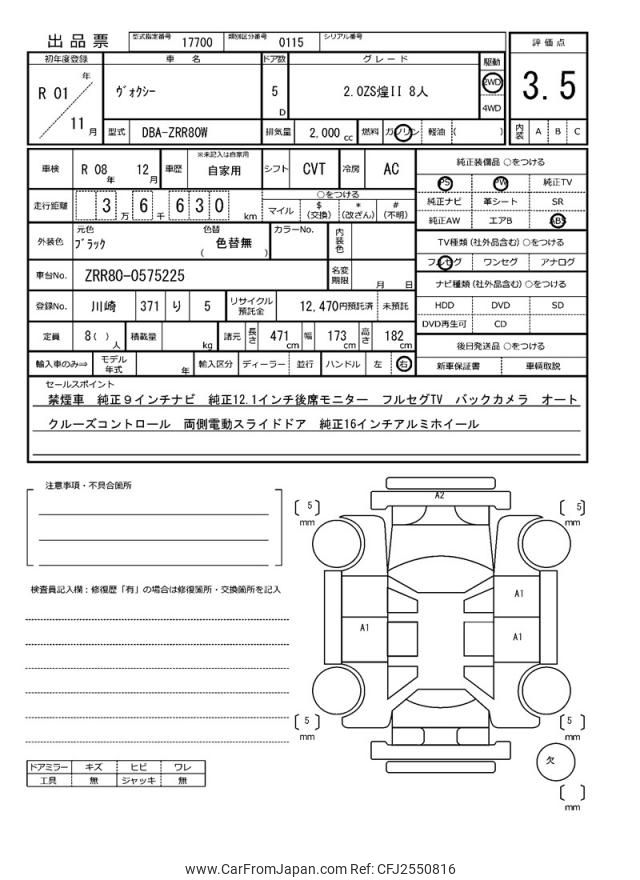 出品票 型式指定番号 17700 類別区分番号 0115 シリアル番号
初年度登録 車 名 ドア数 グレード 駆動 評価点
R 01 年 11 月 ヴォクシー 5 D 2.0ZS煌II 8人 2WD 4WD 3.5
型式 DBA-ZRR80W 排気量 2,000 cc 燃料 ガソリン 軽油 ( ) 内装 A B C
車検 R 08 年 12 月 車歴 ※未記入は自家用 自家用 シフト CVT 冷房 AC 純正装備品 ○をつける
PS PW 純正TV
走行距離 3 万 6 千 630 km ○をつける マイル $ (交換) * (改ざん) # (不明) 純正ナビ 革シート SR
純正AW エアB ABS
外装色 元色 ブラック 色替 色替無 ( ) カラーNo. 内装色 TV種類 (社外品含む) ○をつける
フルセグ ワンセグ アナログ
車台No. ZRR80-0575225 名変期限 月 日 ナビ種類 (社外品含む) ○をつける
登録No. 川崎 371 り 5 リサイクル預託金 12,470円預託済 未預託 HDD DVD SD
DVD再生可 CD
定員 8( ) 人 積載量 kg 諸元 長さ 471 cm 幅 173 cm 高さ 182 cm 後日発送品 ○をつける
輸入車のみ⇒ モデル年式 年 輸入区分 ディーラー 並行 ハンドル 左 右 新車保証書 車輌取説
セールスポイント
禁煙車 純正9インチナビ 純正12.1インチ後席モニター フルセグTV バックカメラ オート
クルーズコントロール 両側電動スライドドア 純正16インチアルミホイール
注意事項・不具合箇所
A2
5 mm
5 mm
検査員記入欄:修復歴「有」の場合は修復箇所・交換箇所を記入
A1
A1
A1
5 mm
5 mm
欠
mm
ドアミラー キズ ヒビ ワレ
工具 無 ジャッキ 無
www.CarFromJapan.com Ref: CFJ2550816